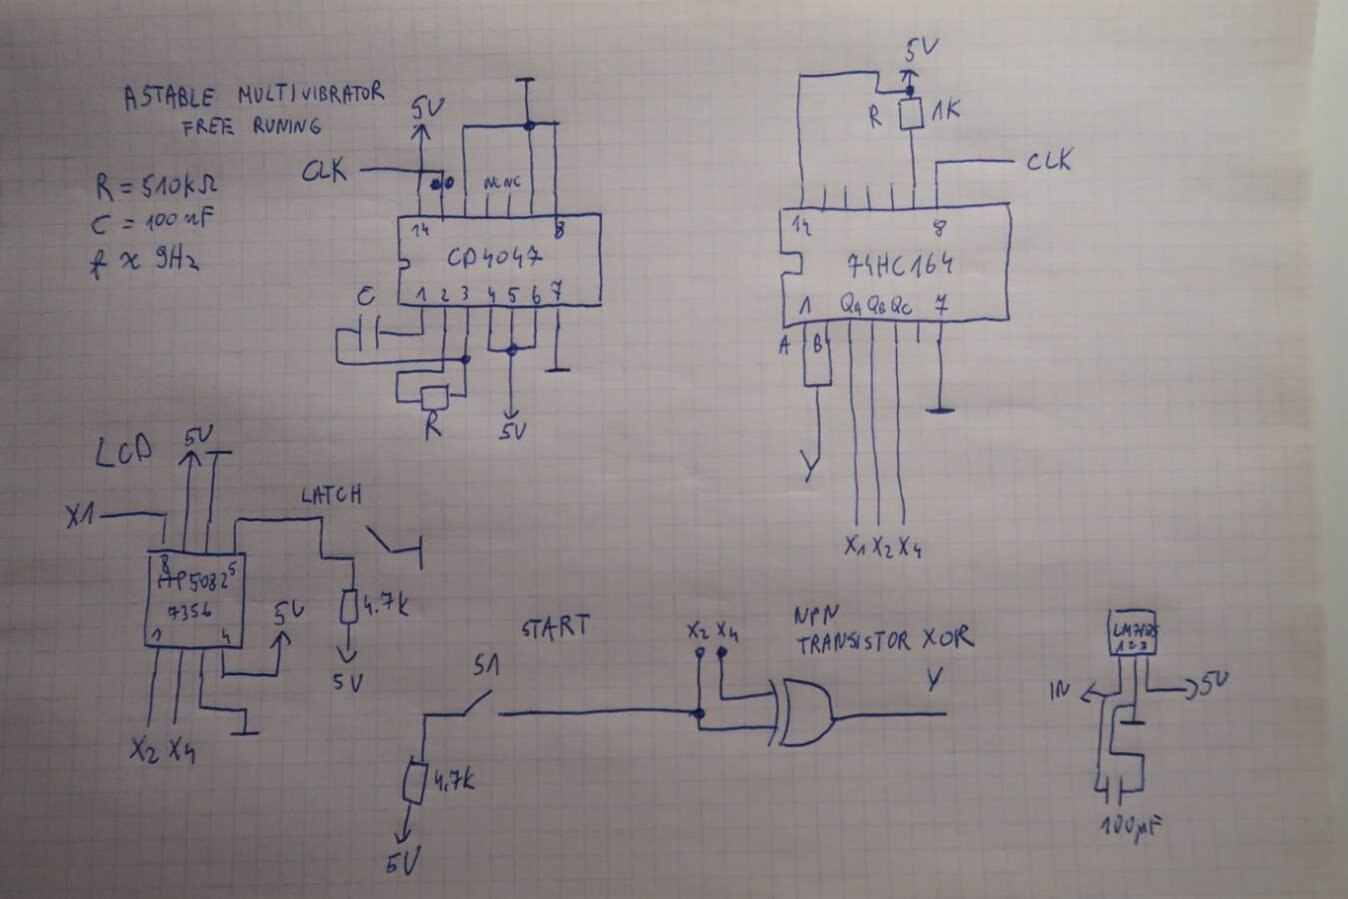 ASTABLE MULTIVIBRATOR
FREE RUNING
R = 510kΩ
C = 100nF
f ≈ 9Hz
5V
CLK
NC NC
14 8
CD4047
1 2 3 4 5 6 7
C
R
5V
5V
R 1K
CLK
14 8
74HC164
1 QA QB QC 7
A B
Y
X1 X2 X4
LCD
5V
X1
LATCH
8 5
HP5082
7356
1 4
5V
4.7k
5V
X2 X4
START
S1
4.7k
5V
X2 X4
NPN
TRANSISTOR XOR
Y
1 2 3
IN
5V
100µF